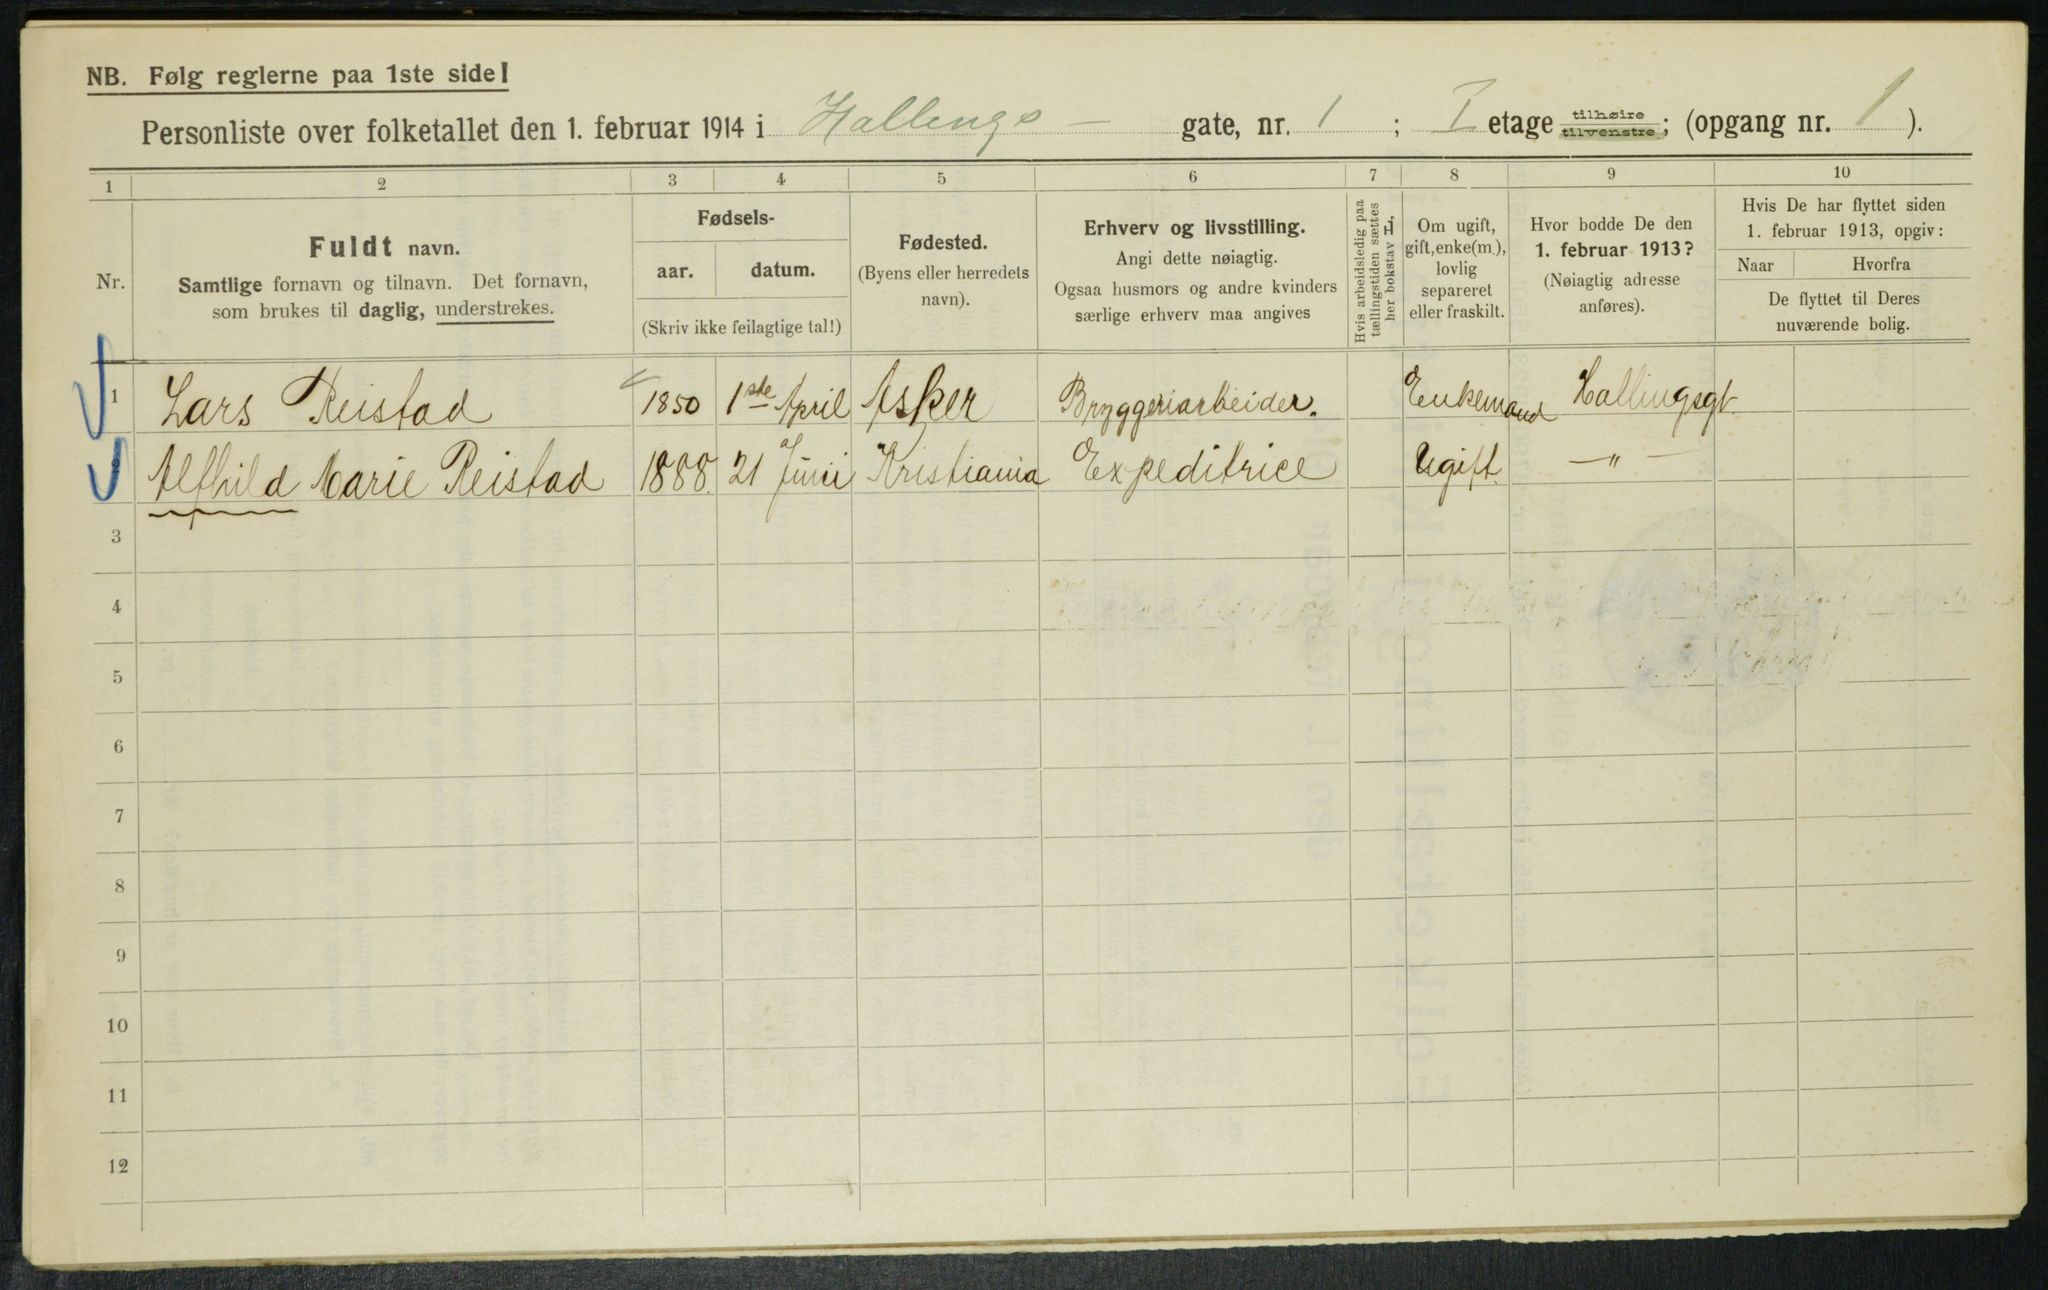 NB. Følg reglerne paa 1ste side!
Personliste over folketallet den 1. februar 1914 i Hallings — gate, nr. 1 ; I etage tilhøire tilvenstre; (opgang nr. 1 ).
1 2 3 4 5 6 7 8 9 10
Nr.
Fuldt navn.
Samtlige fornavn og tilnavn. Det fornavn,
som brukes til daglig, understrekes.
Fødsels-
aar. datum.
(Skriv ikke feilagtige tal!)
Fødested.
(Byens eller herredets
navn).
Erhverv og livsstilling.
Angi dette nøiagtig.
Ogsaa husmors og andre kvinders
særlige erhverv maa angives
Hvis arbeidsledig paa
tællingstiden sættes
her bokstav L.
Om ugift,
gift, enke(m.),
lovlig
separeret
eller fraskilt.
Hvor bodde De den
1. februar 1913?
(Nøiagtig adresse
anføres).
Hvis De har flyttet siden
1. februar 1913, opgiv:
Naar Hvorfra
De flyttet til Deres
nuværende bolig.
1 Lars Reistad 1850 1ste April Asker Bryggeriarbeider. Enkemand Hallingsgt.
2 Alfhild Marie Reistad 1888. 21 Juni Kristiania Expeditrice Ugift. — " —
3
4
5
6
7
8
9
10
11
12